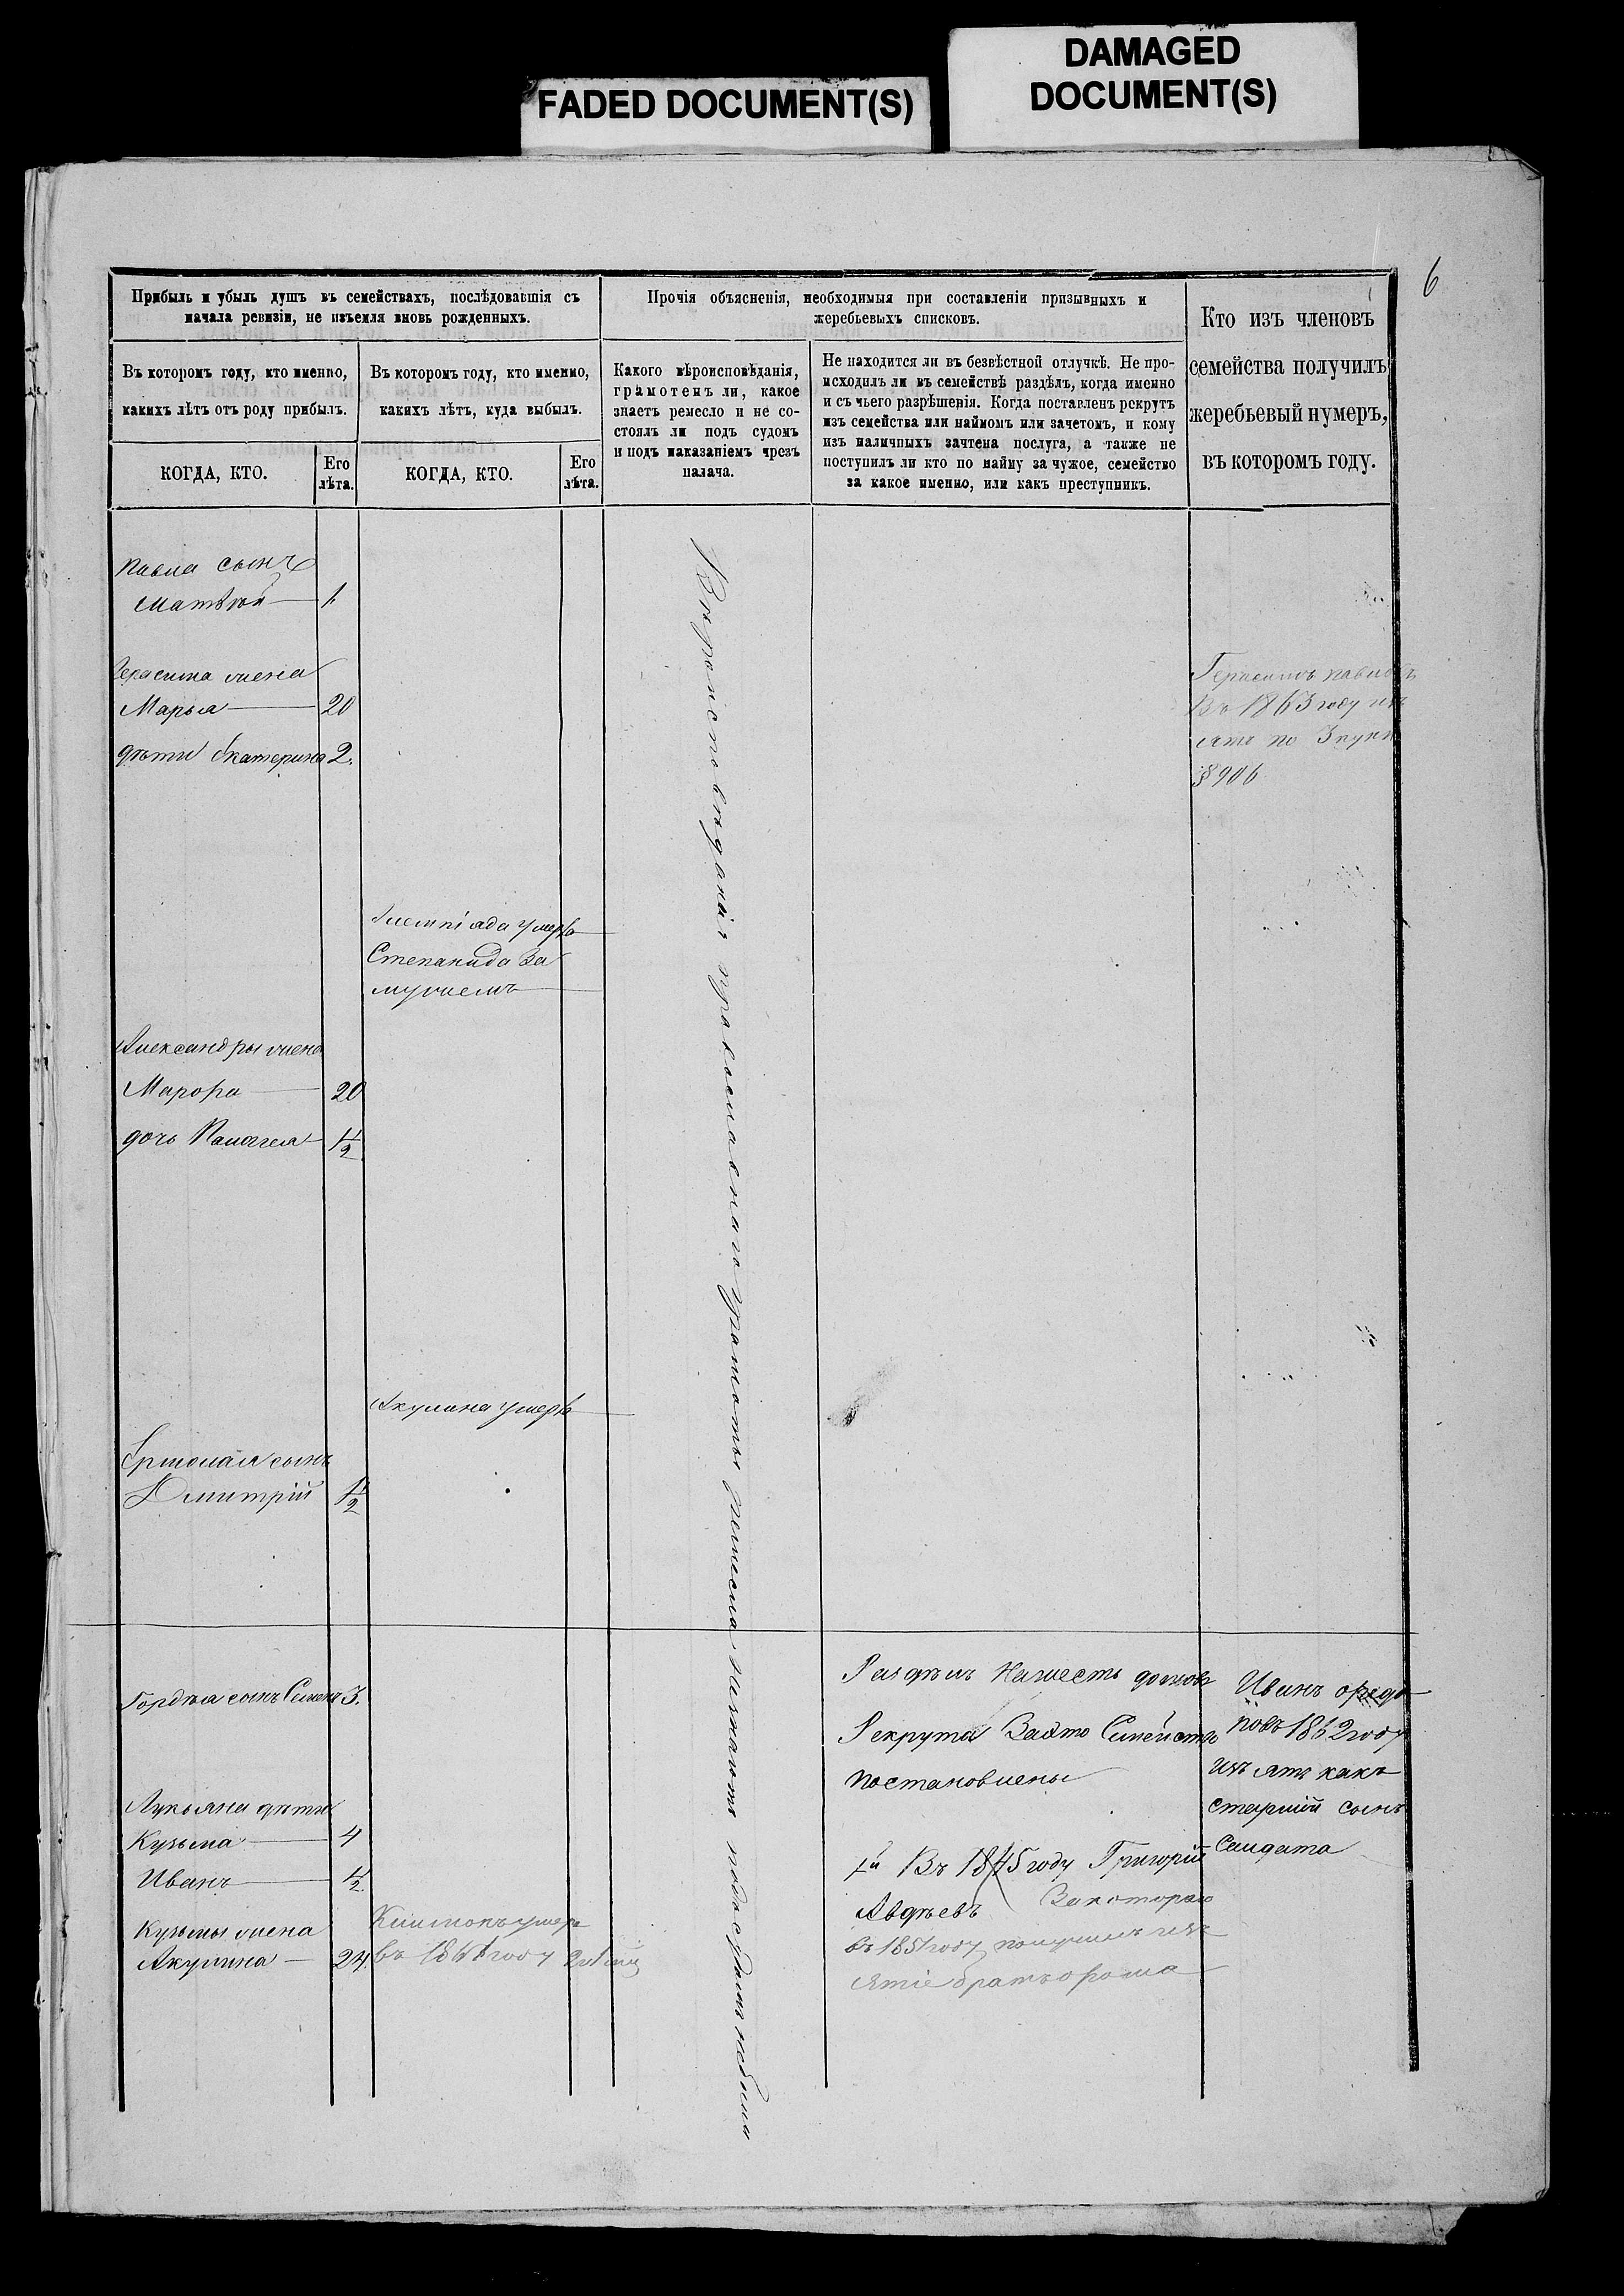 FADED DOCUMENT(S)
DAMAGED
DOCUMENT(S)
6
Прибыль и убыль душъ въ семействахъ, послѣдовавшія съ
начала ревизіи, не изъемля вновь рожденныхъ.
Въ которомъ году, кто именно,
какихъ лѣтъ отъ роду прибылъ.
КОГДА, КТО.
Его
лѣта.
Въ которомъ году, кто именно,
какихъ лѣтъ, куда выбылъ.
КОГДА, КТО.
Его
лѣта.
Прочія объясненія, необходимыя при составленіи призывныхъ и
жеребьевыхъ списковъ.
Какого вѣроисповѣданія,
грамотенъ ли, какое
знаетъ ремесло и не со-
стоялъ ли подъ судомъ
и подъ наказаніемъ чрезъ
палача.
Не находится ли въ безвѣстной отлучкѣ. Не про-
исходилъ ли въ семействѣ раздѣлъ, когда именно
и съ чьего разрѣшенія. Когда поставленъ рекрутъ
изъ семейства или наймомъ или зачетомъ, и кому
изъ наличныхъ зачтена послуга, а также не
поступилъ ли кто по найму за чужое, семейство
за какое именно, или какъ преступникъ.
Кто изъ членовъ
семейства получилъ
жеребьевый нумеръ,
въ которомъ году.
Павла сынъ
Матвѣй 1
Герасима жена
Марья 20
дѣти Екатерина 2.
Герасимъ Павловъ
Въ 1863 году изъ
ятъ по 3 пунк
§ 906
Вѣроисповѣданія православнаго грамоты ремесла незнаютъ подъ судомъ небыли
Олемпіада умерла
Степанида За
мужемъ
Александры жена
20
дочь Палагея 1/2
Акулина умерла
Ермолая сынъ
Дмитрій 1/2
Гордѣя сынъ Семенъ 3.
Раздѣлъ На шесть домовъ
Рекрута За это Семейство
постановлены
Иванъ
1862 году
изъ ятъ какъ
старшій сынъ
Салдата
Лукьяна дѣти
Кузьма 4
Иванъ 1/2
1й Въ 1845 году Григорій
Авдѣевъ За котораго
въ 1851 году получилъ изъ
ятіе братъ
Кузьмы жена
Акулина 24.
умеръ
году